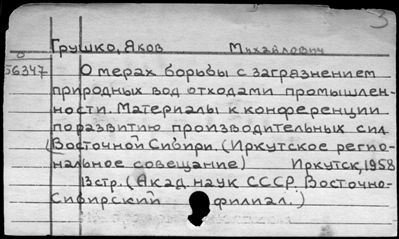 З
Грушко, Яков Михайлович
56347 О мерах борьбы с загрязнением
природных вод отходами промышлен-
ности. Материалы к конференции
поразвитию производительных сил
Восточной Сибири. (Иркутское регио-
нальное совещание) Иркутск, 1958
13 стр. (Акад. наук СССР. Восточно-
Сибирский филиал.)